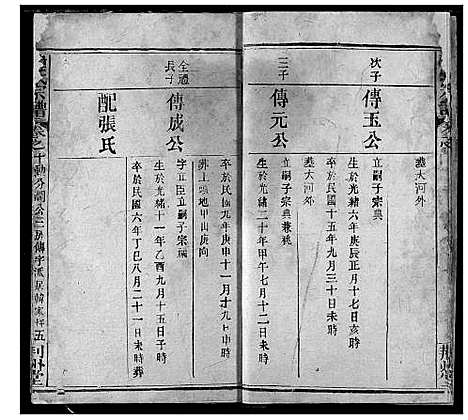 葬大河外
次子
傳玉公
立嗣子宗典
生於光緒六年庚辰正月十七日亥時
卒於民國十五年九月三十日未時
葬大河外
三子
傳元公
立嗣子宗典兼祧
生於光緒二十年甲午七月十二日未時
卒於民國九年庚申十一月十九日申時
葬上壩地甲山庚向
全禮長子
傳成公
字正臣立嗣子宗福
生於光緒十一年乙酉九月十五日酉時
配張氏
卒於民國六年丁巳八月二十一日未時葬